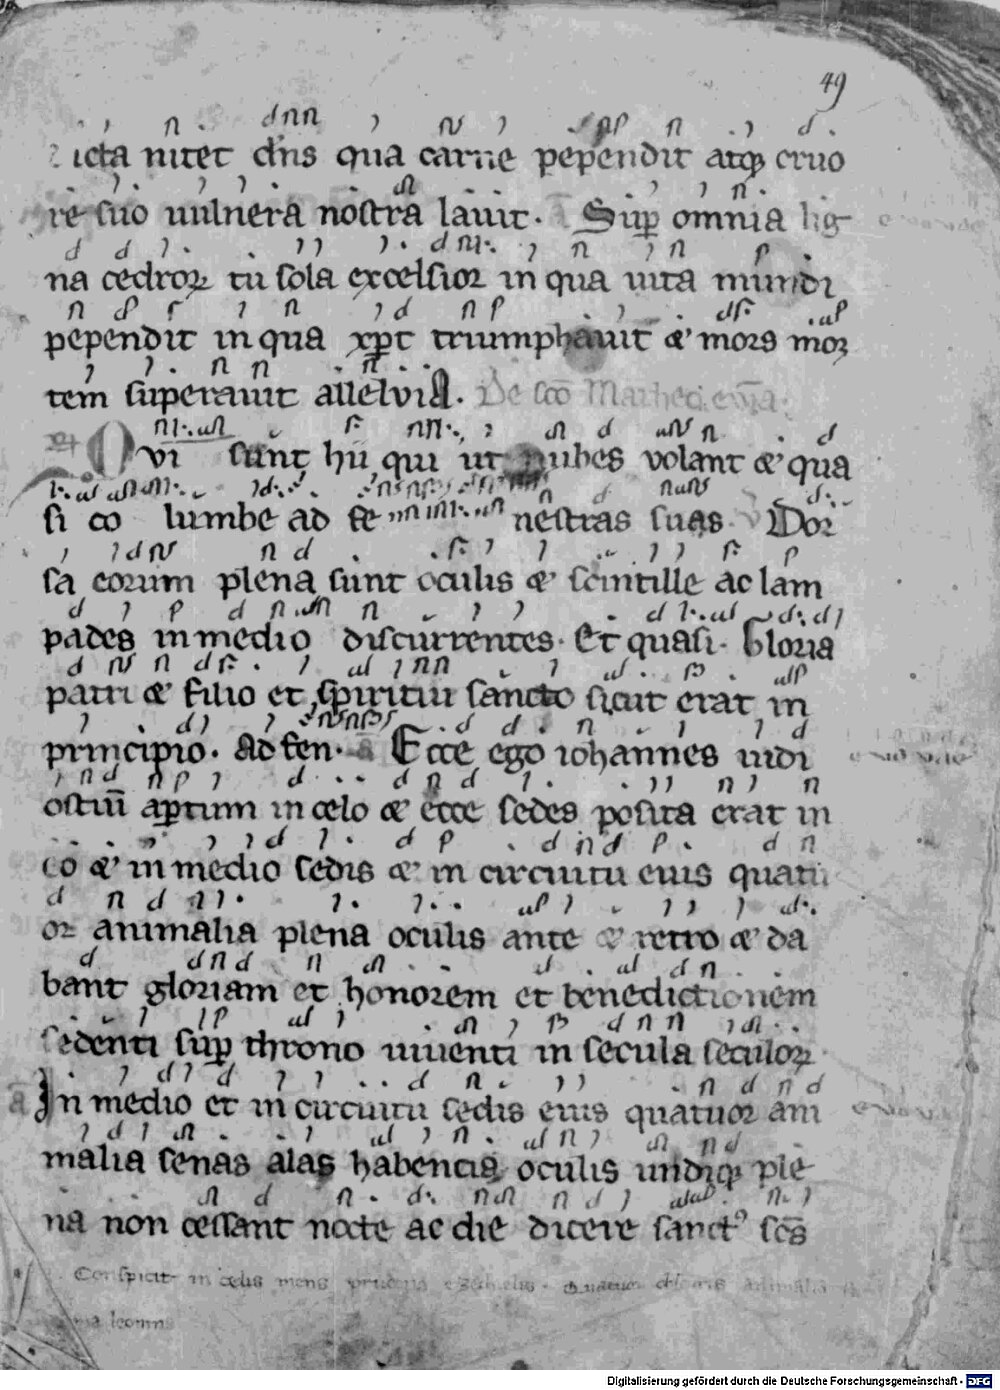 49
icta nitet dn̄s qua carne pependit atq; cruo
re suo uulnera nostra lauit. A Sup̱ omnia lig
na cedroꝝ tu sola excelsior in qua uita mundi
pependit in qua xp̄c triumphauit & mors moꝛ
tem superauit allelviA. De sc̄o Matheo ew̄a.
Qvi sunt hii qui ut nubes volant & qua
si co lumbe ad fe nestras suas. V Dor
sa eorum plena sunt oculis & scintille ac lam
pades in medio discurrentes. Et quasi. Gloria
patri & filio et spiritui sancto sicut erat in
principio. Ad fen. A Ecce ego iohannes uidi
ostiū ap̱tum in celo & ecce sedes posita erat in
eo & in medio sedis & in circuitu eius quatu
or animalia plena oculis ante & retro & da
bant gloriam et honorem et benedictionem
sedenti sup̱ throno uiuenti in secula seculoꝝ.
A In medio et in circuitu sedis eius quatuor ani
malia senas alas habencia oculis undiq; ple
na non cessant nocte ac die dicere sanctꝰ sc̄s
Conspicit in celis mens prudens ezechielis. Quatuor animalia
Digitalisierung gefördert durch die Deutsche Forschungsgemeinschaft - DFG